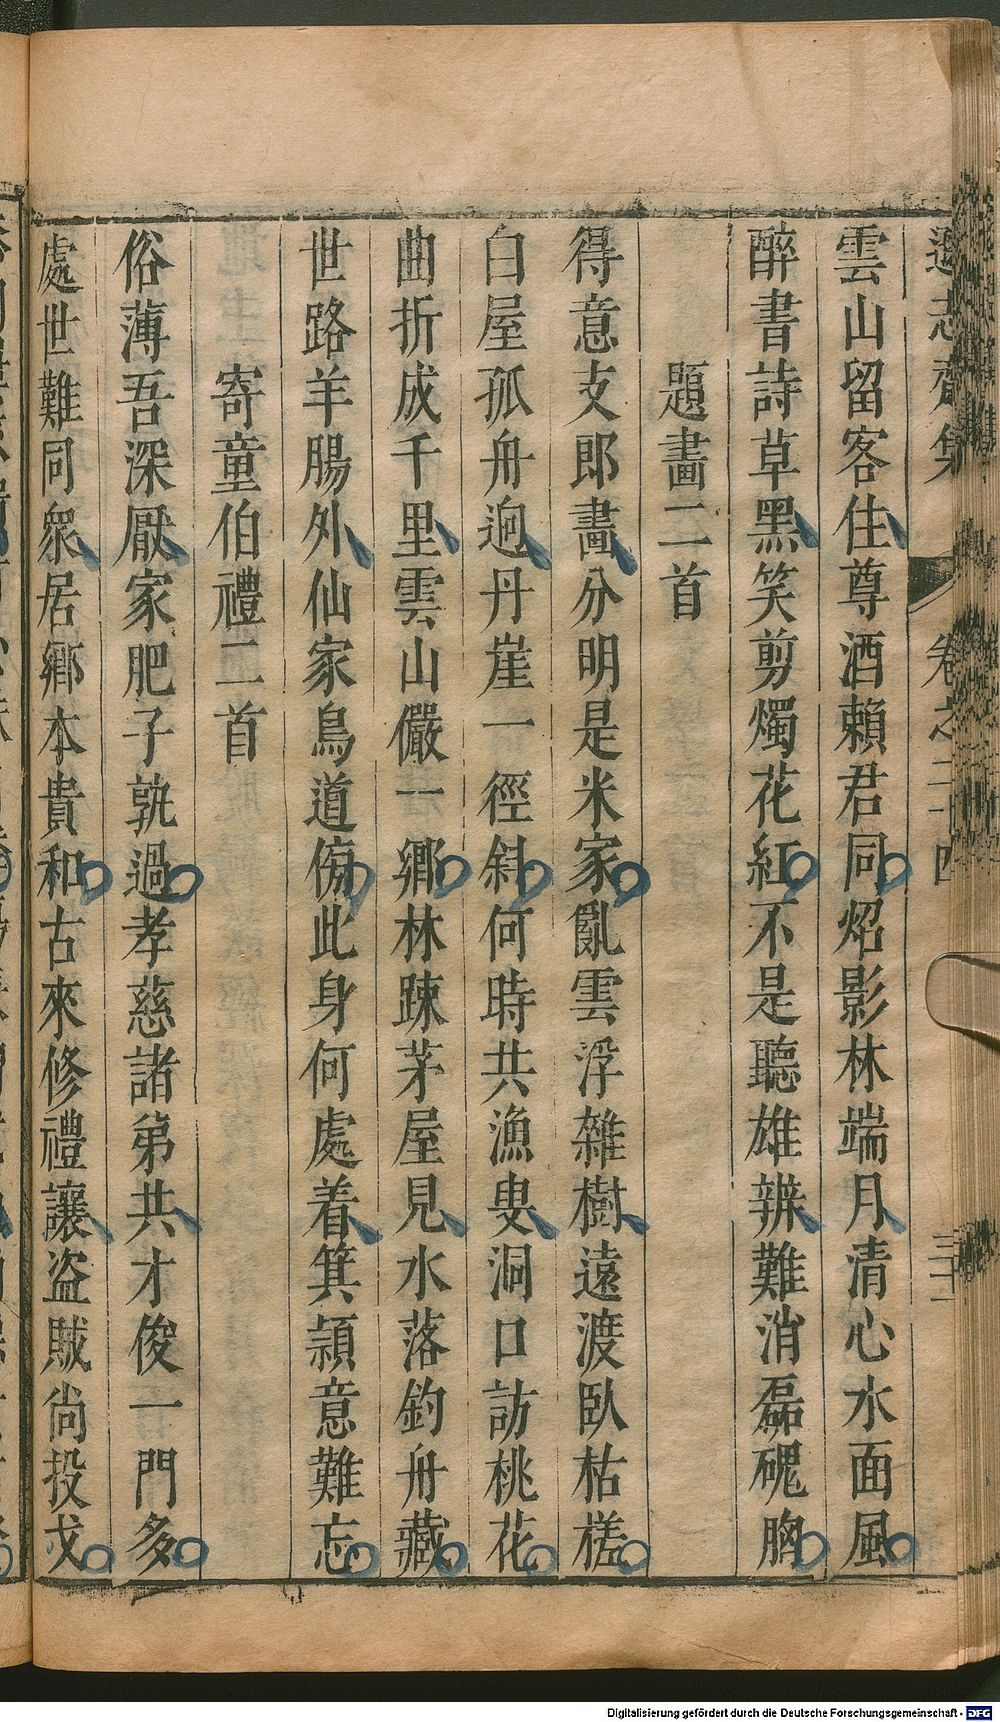 遜志齋集 卷之二十四 三十一
雲山留客住尊酒賴君同炤影林端月清心水面風
醉書詩草黑笑剪燭花紅不是聽雄辨難消磊磈胸
題畫二首
得意支郎畫分明是米家亂雲浮雜樹遠渡臥枯槎
白屋孤舟逈丹崖一徑斜何時共漁叟洞口訪桃花
曲折成千里雲山儼一鄉林踈茅屋見水落釣舟藏
世路羊腸外仙家鳥道傍此身何處着箕潁意難忘
寄童伯禮二首
俗薄吾深厭家肥子孰過孝慈諸弟共才俊一門多
處世難同衆居鄉本貴和古來修禮讓盜賊尙投戈
Digitalisierung gefördert durch die Deutsche Forschungsgemeinschaft - DFG